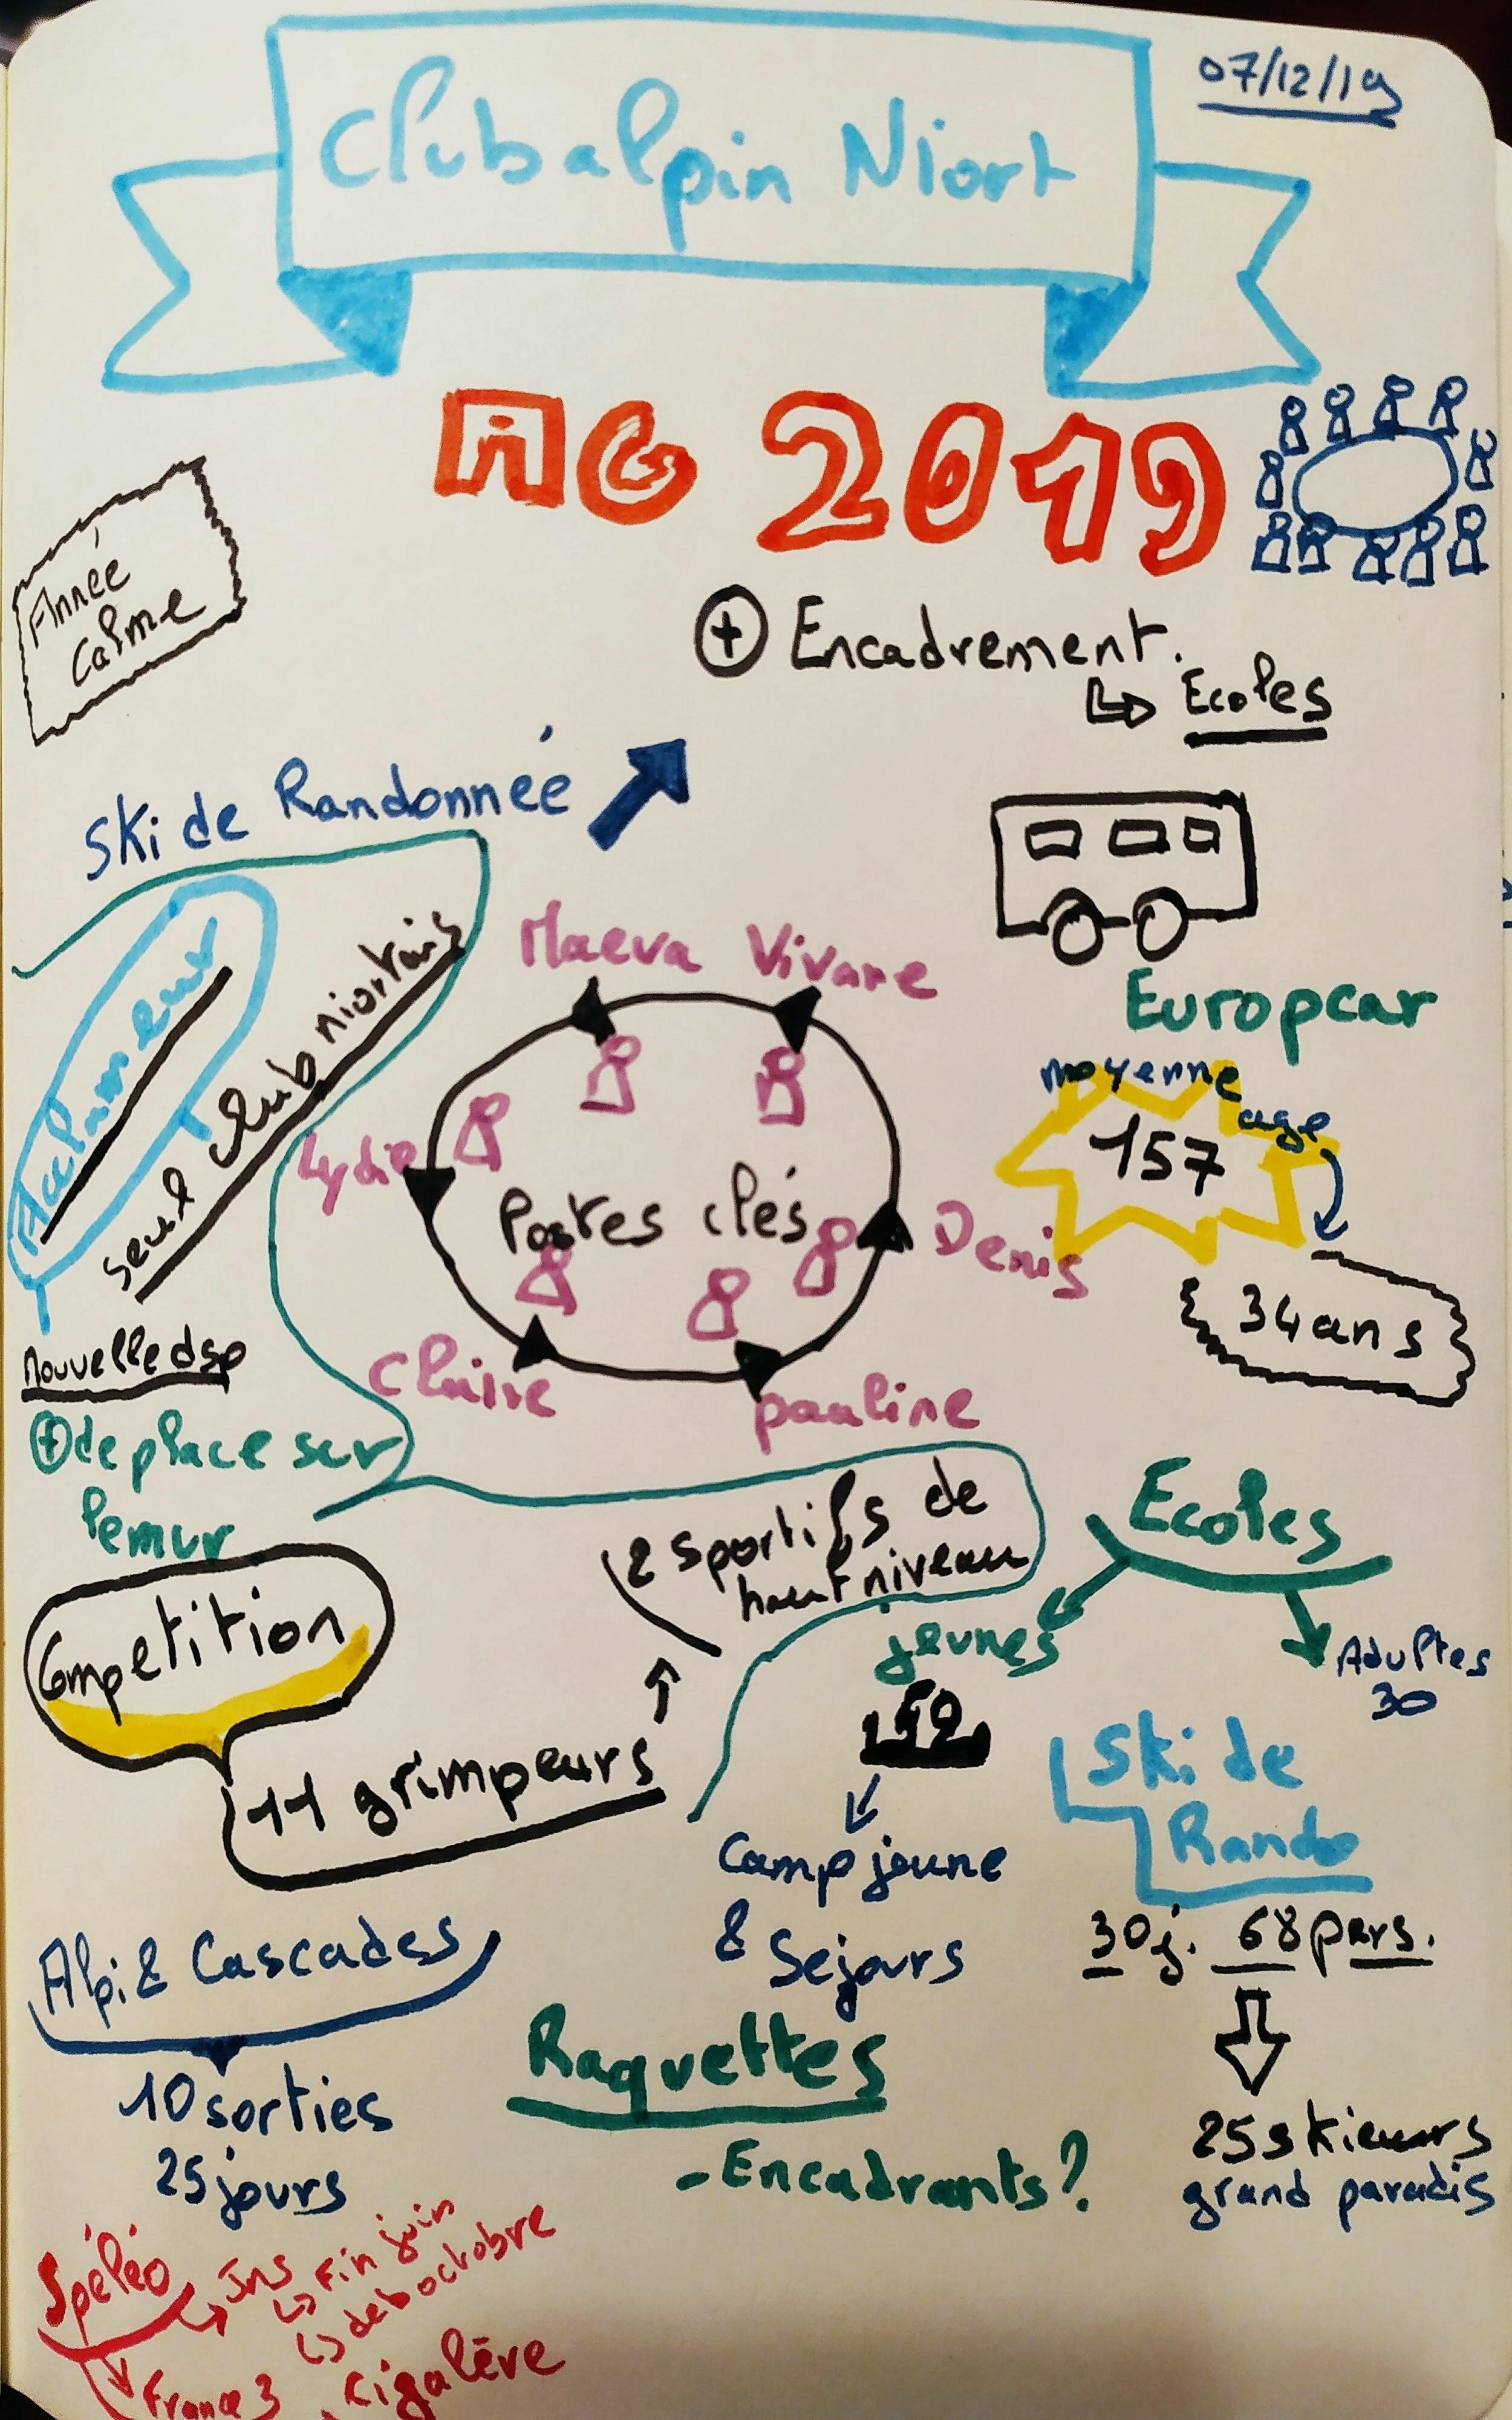 07/12/19
Club alpin Niort
AG 2019
Année
Calme
+ Encadrement.
Ecoles
Ski de Randonnée
Europcar
seul club niortais
Maeva
Vivane
Lydie
Denis
Claire
pauline
Postes clés
moyenne
age
157
34 ans
Nouvelle dsp
+ de place sur
le mur
2 sportifs de
haut niveau
Competition
11 grimpeurs
Ecoles
jeunes
Adultes
30
Camp jeune
& Sejours
Ski de
Rando
30j. 68 pers.
25 skieurs
grand paradis
Alpi & Cascades
10 sorties
25 jours
Raquettes
- Encadrants?
Spéléo
Fin juin
deb octobre
France 3
Cigalère